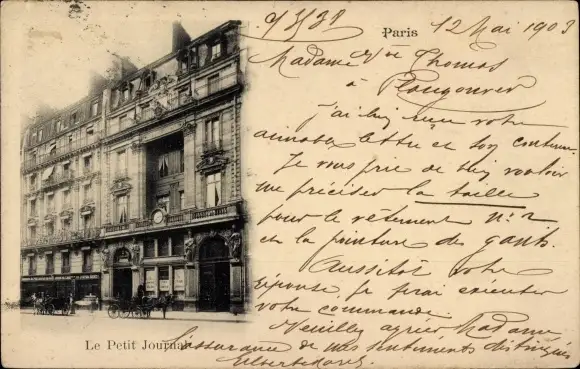 Paris 12 Mai 1903
Madame Vve Thomas
à Plougonver
j'ai bien reçu votre
aimable lettre et son contenu
Je vous prie de bien vouloir
me préciser la taille
pour le vêtement no 2
et la pointure de gants.
Aussitôt votre
réponse, je ferai exécuter
votre commande.
Veuillez agréer Madame
l'assurance de mes sentiments distingués
Le Petit Journal